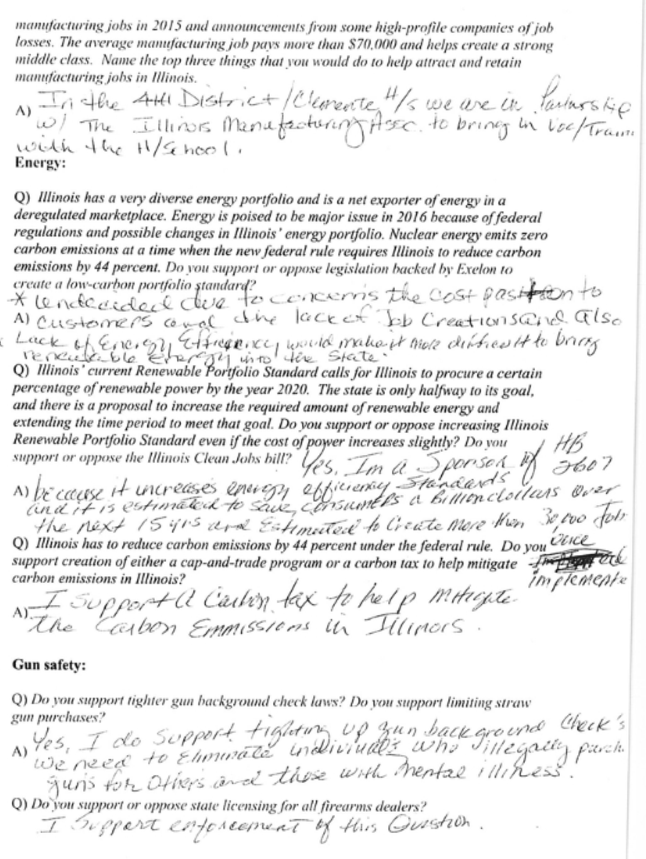 manufacturing jobs in 2015 and announcements from some high-profile companies of job
losses. The average manufacturing job pays more than $70,000 and helps create a strong
middle class. Name the top three things that you would do to help attract and retain
manufacturing jobs in Illinois.
A) In the 4th District/Clemente H/S we are in Partnership
w/ The Illinois Manufacturing Assoc. to bring in Voc/Train
with the H/School.
Energy:
Q) Illinois has a very diverse energy portfolio and is a net exporter of energy in a
deregulated marketplace. Energy is poised to be major issue in 2016 because of federal
regulations and possible changes in Illinois' energy portfolio. Nuclear energy emits zero
carbon emissions at a time when the new federal rule requires Illinois to reduce carbon
emissions by 44 percent. Do you support or oppose legislation backed by Exelon to
create a low-carbon portfolio standard?
* Undecided due to concerns the cost pass on to
A) Customers and the lack of Job Creations and also
Lack of Energy Efficiency would make it more difficult to bring
renewable Energy into the State.
Q) Illinois' current Renewable Portfolio Standard calls for Illinois to procure a certain
percentage of renewable power by the year 2020. The state is only halfway to its goal,
and there is a proposal to increase the required amount of renewable energy and
extending the time period to meet that goal. Do you support or oppose increasing Illinois
Renewable Portfolio Standard even if the cost of power increases slightly? Do you
support or oppose the Illinois Clean Jobs bill? Yes, I'm a Sponsor of HB 2607
A) because it increases energy efficiency Standards
and it is estimated to save consumers a Billion dollars over
the next 15 yrs and Estimated to Create More than 30,000 Jobs
Q) Illinois has to reduce carbon emissions by 44 percent under the federal rule. Do you once
support creation of either a cap-and-trade program or a carbon tax to help mitigate
carbon emissions in Illinois? implemente
A) I support a Carbon tax to help mitigate
the Carbon Emmissions in Illinois.
Gun safety:
Q) Do you support tighter gun background check laws? Do you support limiting straw
gun purchases?
A) Yes, I do support tighting up gun background Check's
we need to Eliminate individuals who illegally purch
guns for Others and those with mental illness.
Q) Do you support or oppose state licensing for all firearms dealers?
I support enforcement of this Question.